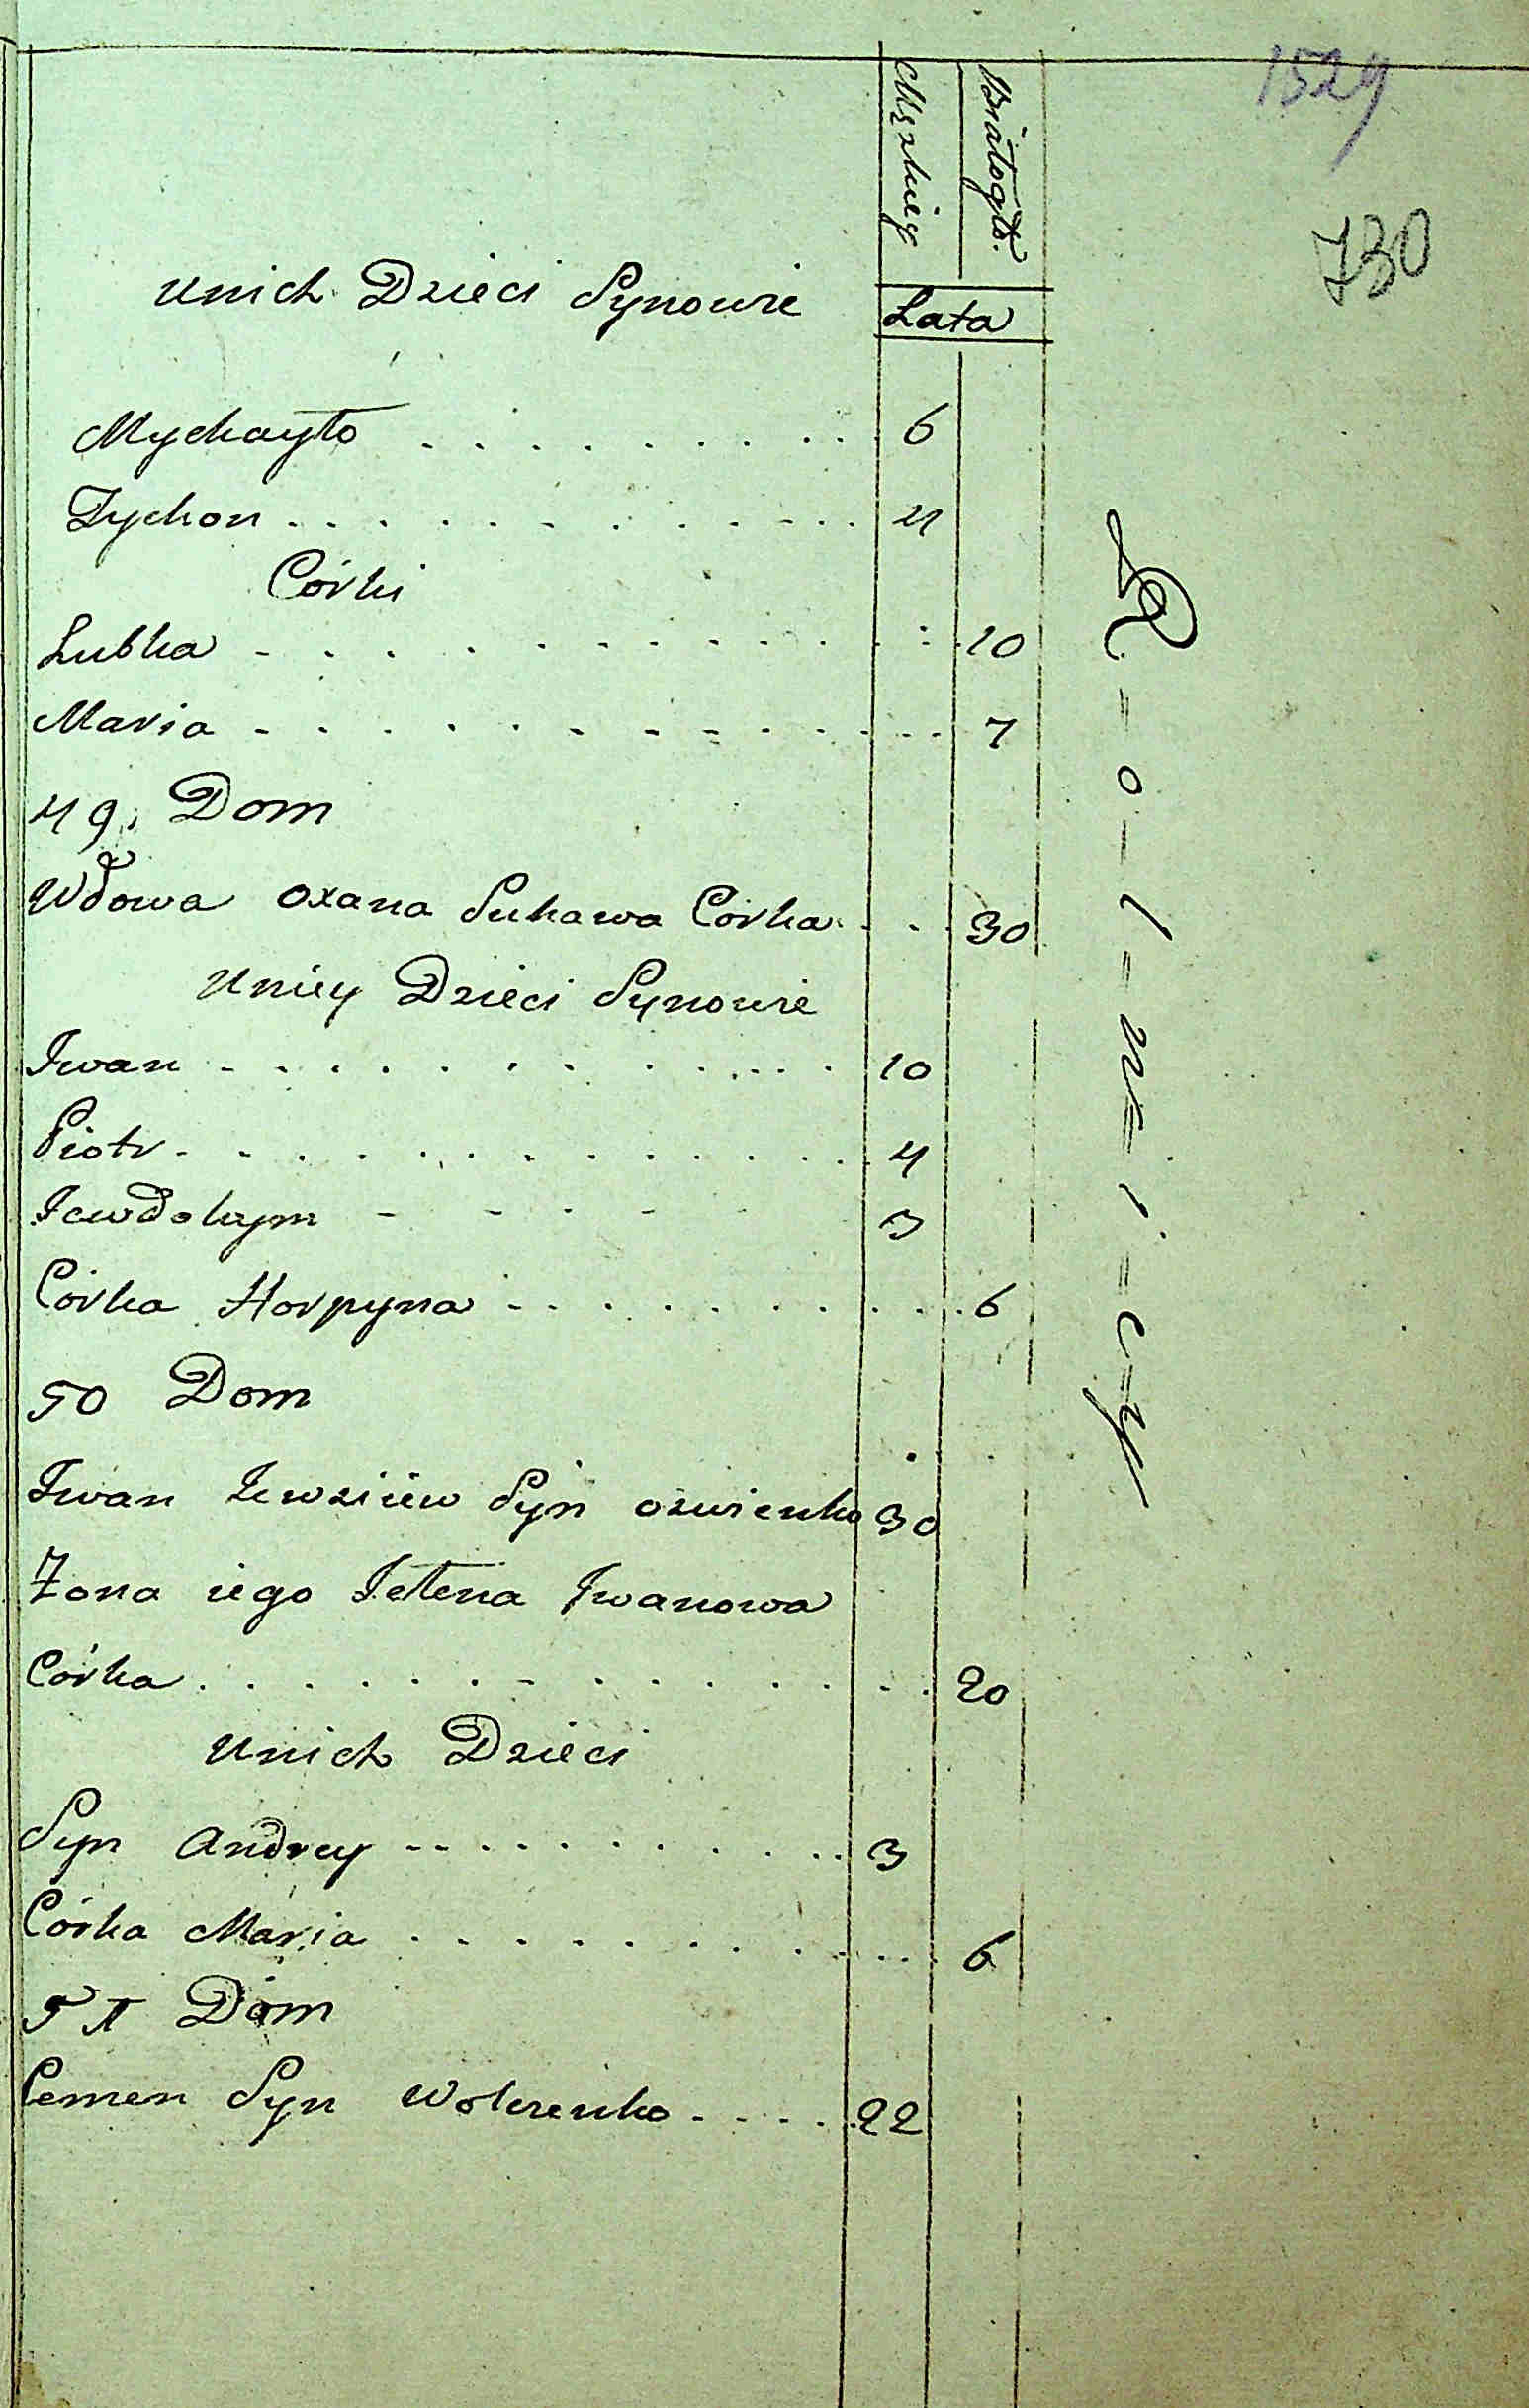 1529
730
Męzkiey
Białogło.
Lata
Unich Dzieci Synowie
Mychayło 6
Tychon 4
Córki
Lubka 10
Maria 7
49. Dom
Wdowa Oxana Sukawa Córka 30
Uniey Dzieci Synowie
Iwan 10
Piotr 4
Jewdokym 3
Córka Horpyna 6
50 Dom
Iwan Syn 30
Żona iego Iwanowa
Córka 20
Unich Dzieci
Syn Andrey 3
Córka Maria 6
51 Dom
Semen Syn 22
R=o=l=n=i=c=y